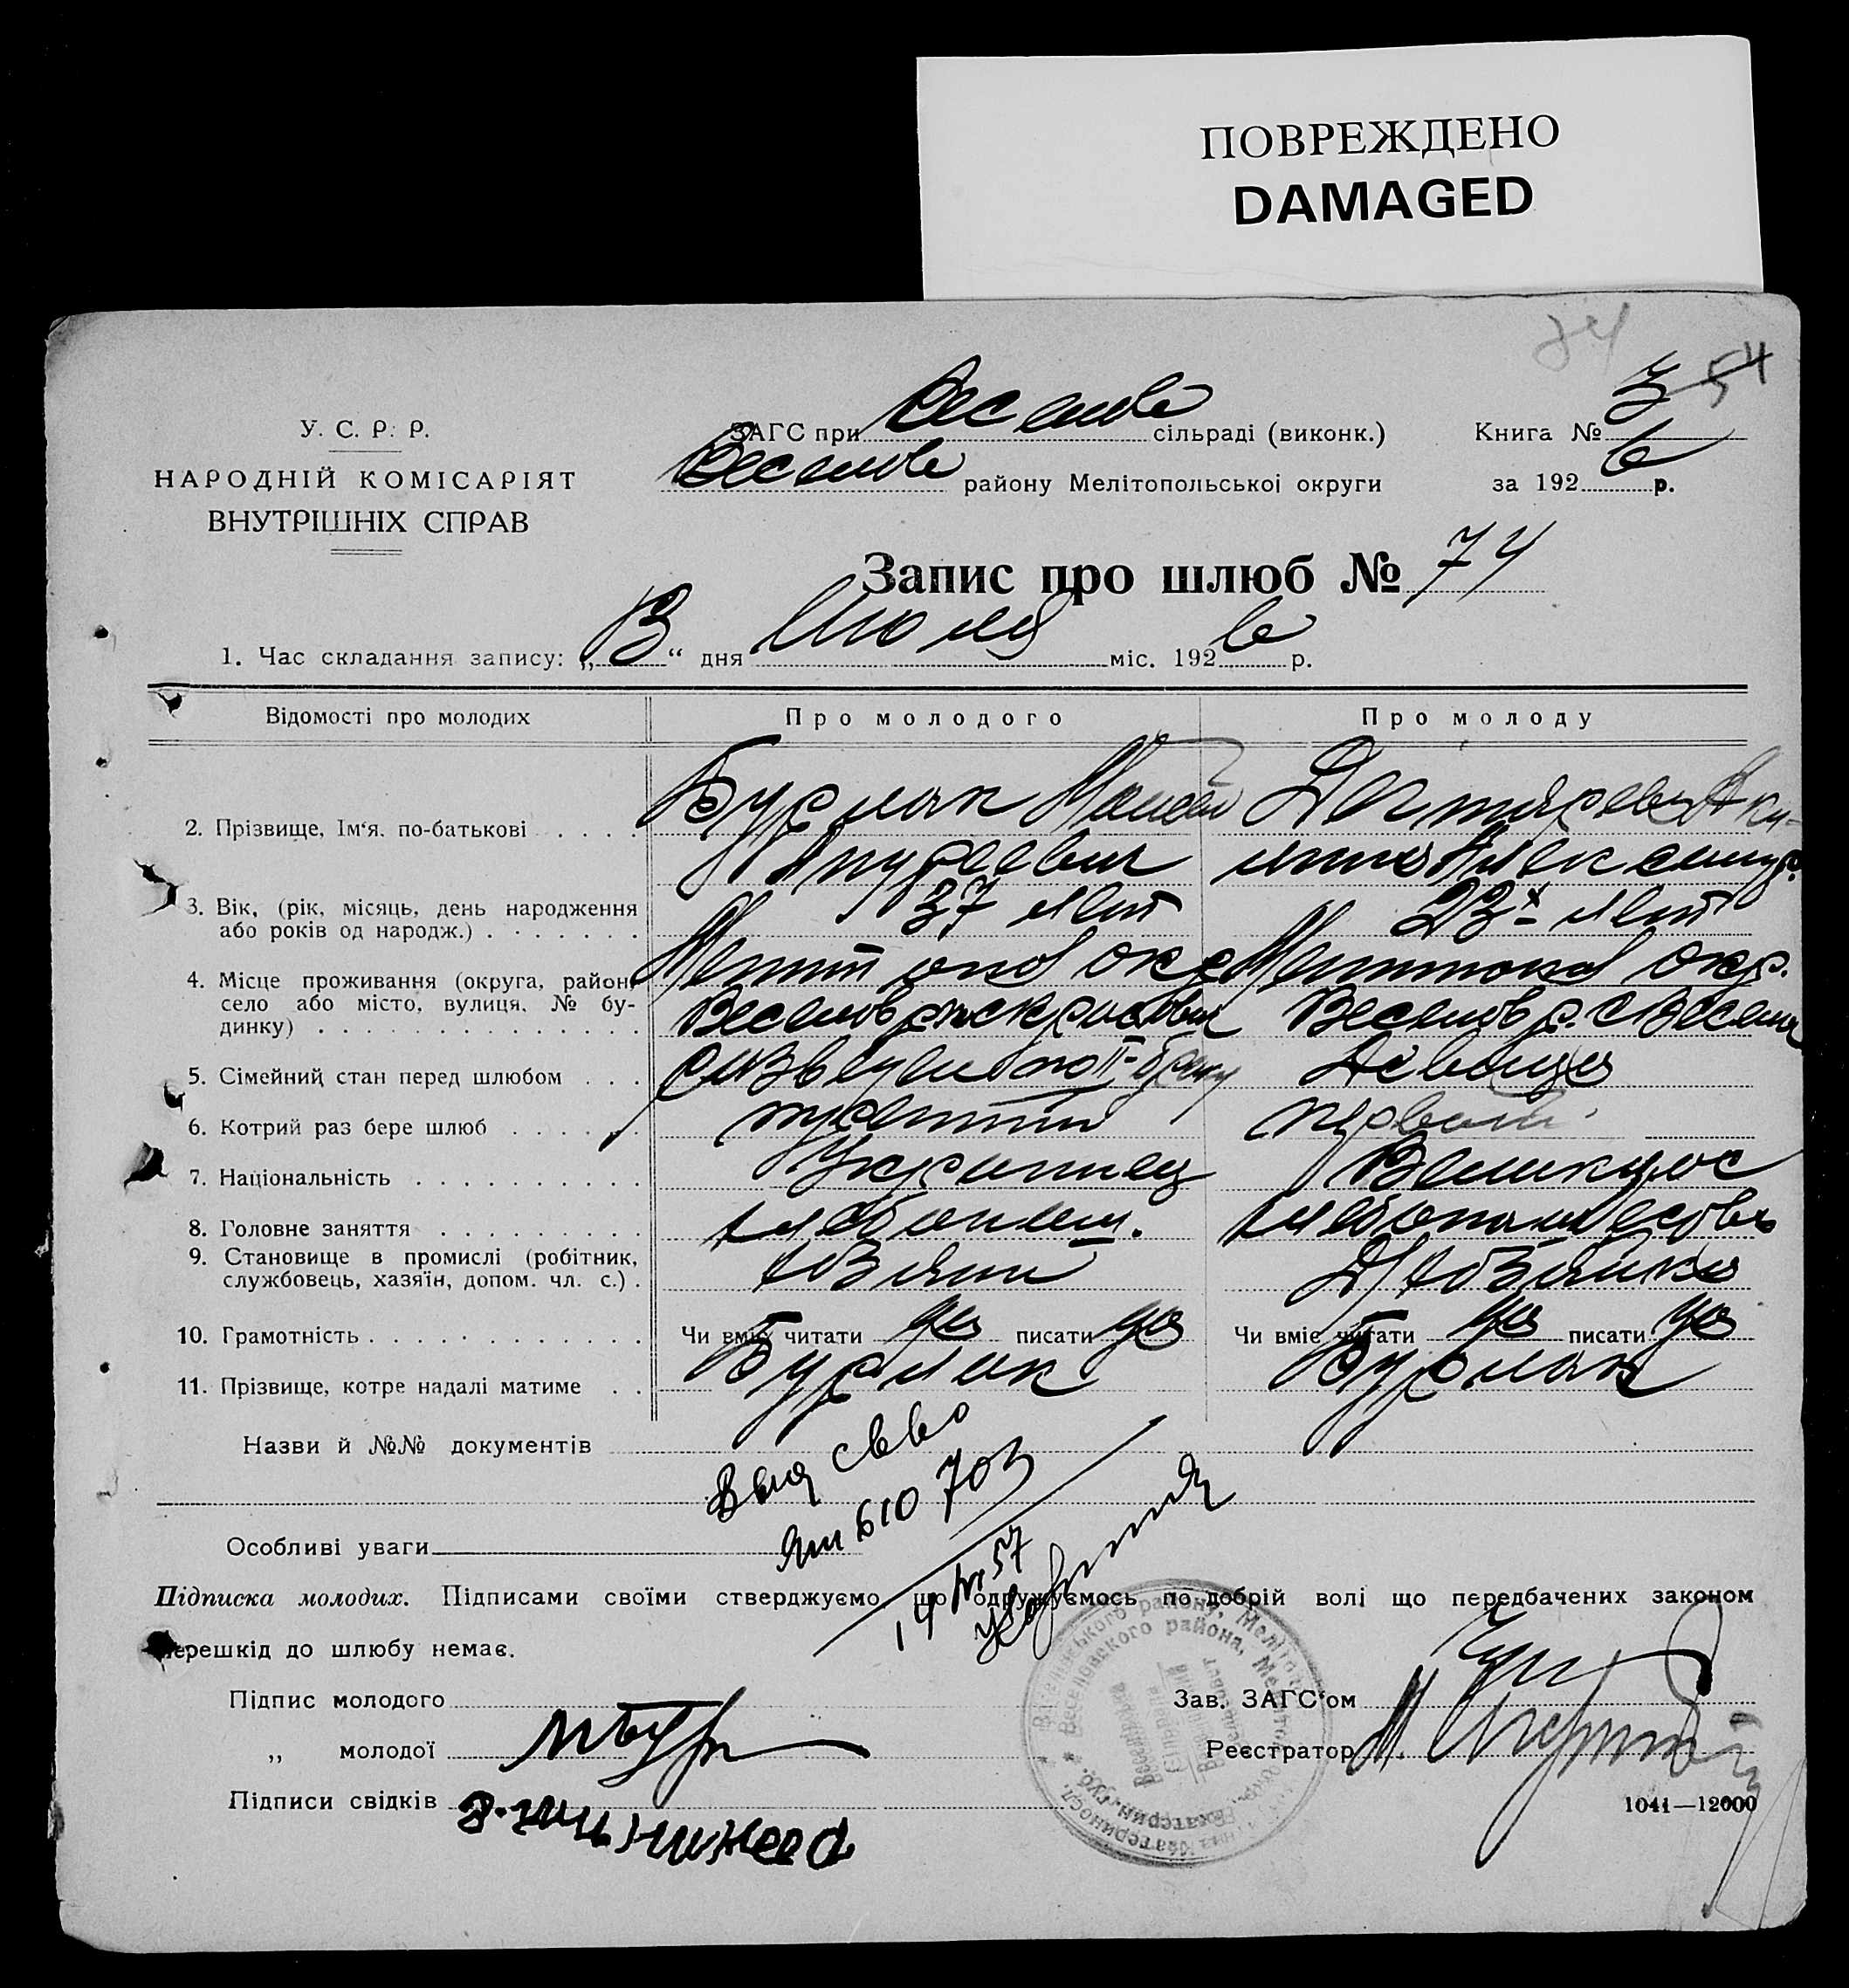 ПОВРЕЖДЕНО
DAMAGED
74
54
У. С. Р. Р.
НАРОДНІЙ КОМІСАРІЯТ
ВНУТРІШНІХ СПРАВ
ЗАГС при Веселов сільраді (виконк.) Книга № 3
Веселов району Мелітопольської округи за 1926 р.
Запис про шлюб № 74
1. Час складання запису: „ 13 “ дня Июля міс. 1926 р.
Відомості про молодих Про молодого Про молоду
2. Прізвище, Ім'я, по-батькові Бурлак Моисей Дегтярева Аку-
Андреевич лина Александр.
3. Вік, (рік, місяць, день народження 37 лет 23х лет
або років од народж.)
4. Місце проживання (округа, район, Мелитопол окр Мелитопол окр.
село або місто, вулиця, № бу- Веселов р. Веселов р. с Веселое
динку)
5. Сімейний стан перед шлюбом разведен по II браку Девица
6. Котрий раз бере шлюб третий первый
7. Національність Украинец Великорос
8. Головне заняття хлебопаш. хлебопашество
9. Становище в промислі (робітник, хозяин Д хозяйка
службовець, хазяїн, допом. чл. с.)
10. Грамотність Чи вміє читати да писати да Чи вміє читати да писати да
11. Прізвище, котре надалі матиме Бурлак Бурлак
Назви й №№ документів
Выд св-во
610703
Особливі уваги
14 57
Підписка молодих. Підписами своїми стверджуємо, що одружуємось по добрій волі що передбачених законом
перешкід до шлюбу немає.
Підпис молодого
„ молодої
Підписи свідків
Зав. ЗАГС'ом
Реєстратор
1041—12000